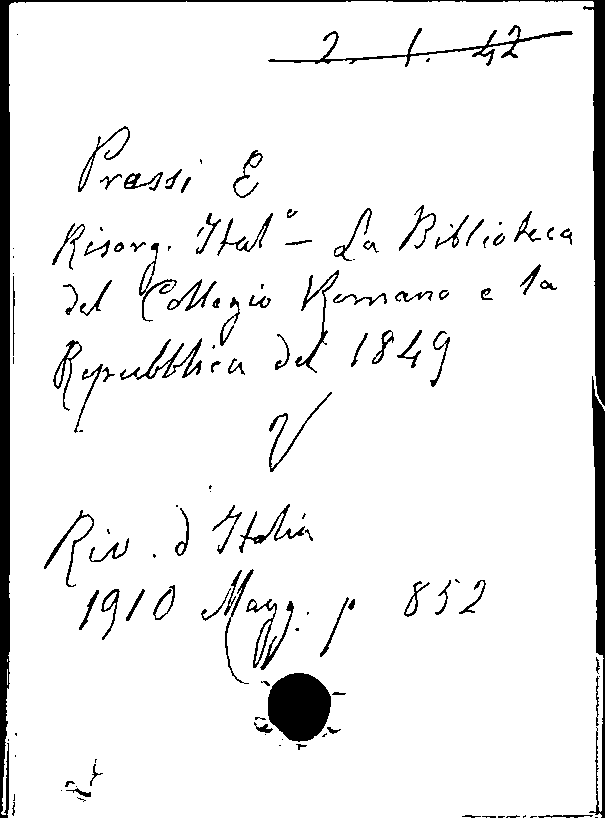 2. 1. 42
Prassi E
Risorg. Ital° - La Biblioteca
del Collegio Romano e la
Repubblica del 1849
V
Riv. d'Italia
1910 Magg. p 852